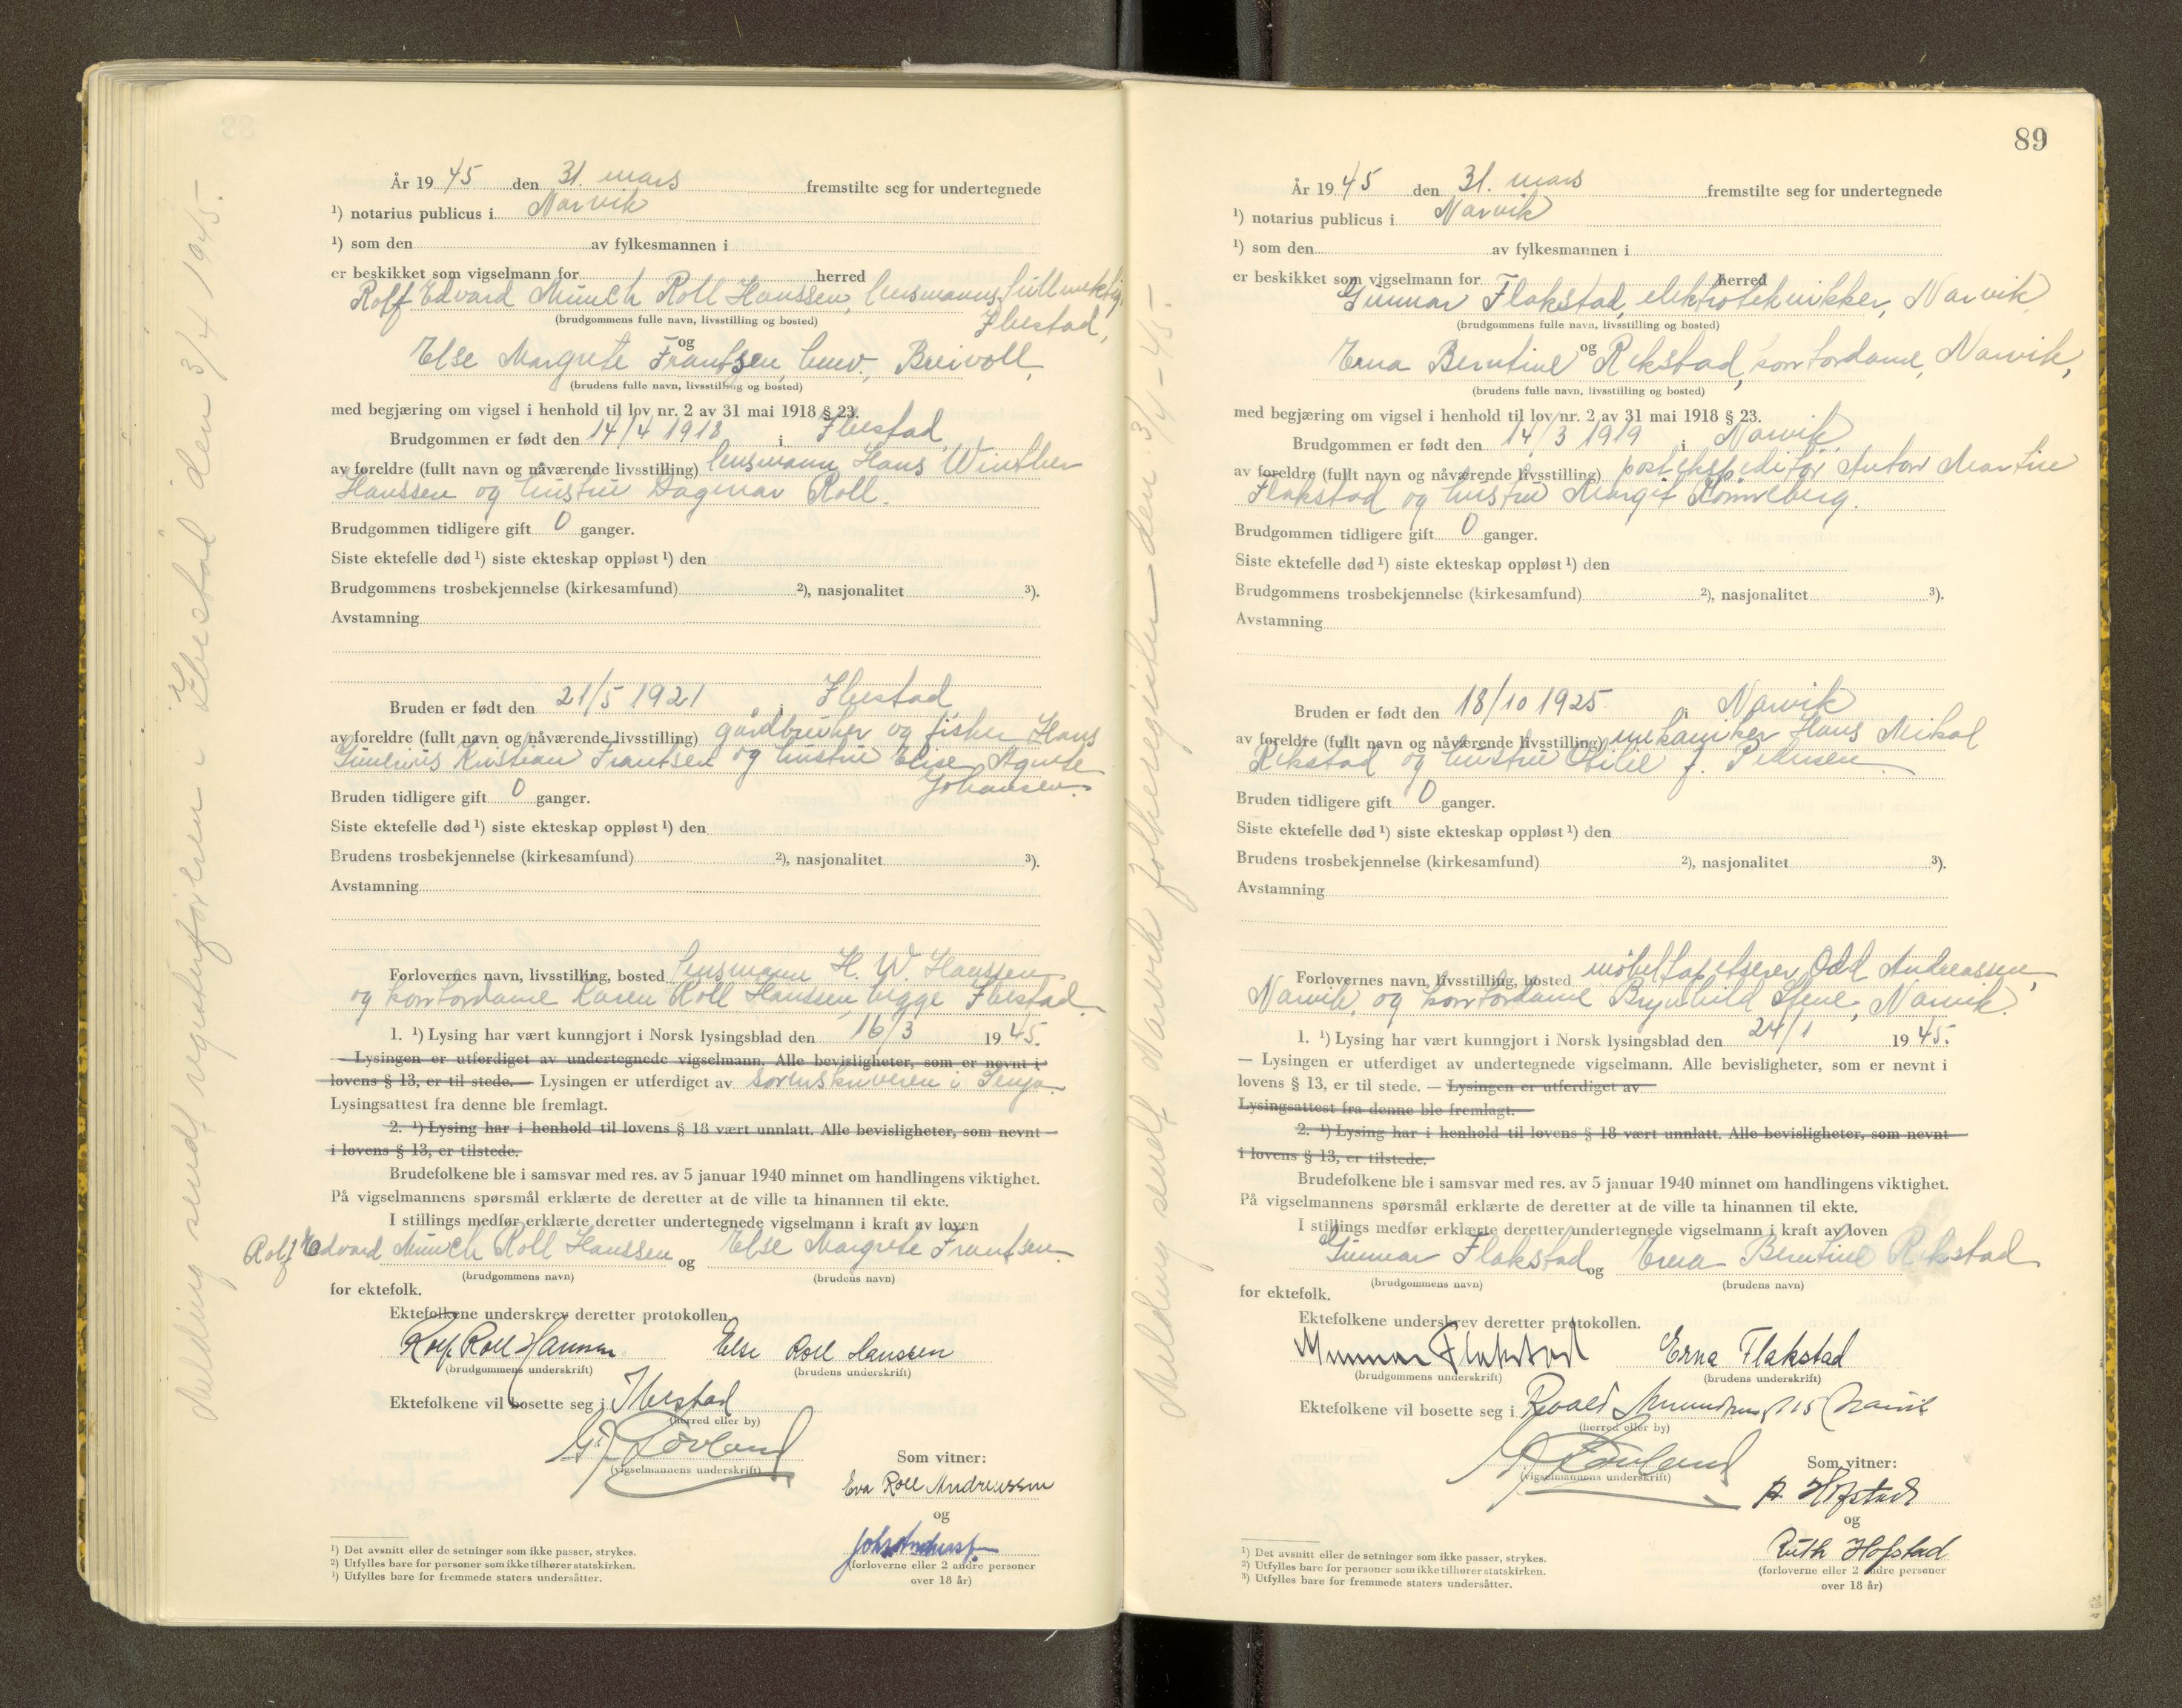 Melding sendt registerføreren i Ibestad den 3/4 1945.-
År 1945 den 31. mars fremstilte seg for undertegnede
¹) notarius publicus i Narvik
¹) som den av fylkesmannen i
er beskikket som vigselmann for herred
Rolf Edvard Münch Roll Hanssen, lensmannsfullmektig,
(brudgommens fulle navn, livsstilling og bosted) Ibestad,
og
Else Margrete Frantsen, hmv., Breivoll,
(brudens fulle navn, livsstilling og bosted)
med begjæring om vigsel i henhold til lov nr. 2 av 31 mai 1918 § 23.
Brudgommen er født den 14/4 1918 i Ibestad
av foreldre (fullt navn og nåværende livsstilling) lensmann Hans Winther
Hanssen og hustru Dagmar Roll.
Brudgommen tidligere gift 0 ganger.
Siste ektefelle død ¹) siste ekteskap oppløst ¹) den
Brudgommens trosbekjennelse (kirkesamfund) ²), nasjonalitet ³).
Avstamning
Bruden er født den 21/5 1921 i Ibestad
av foreldre (fullt navn og nåværende livsstilling) gårdbruker og fisker Hans
Kristian Frantsen og hustru Elise Agnete
Johansen.
Bruden tidligere gift 0 ganger.
Siste ektefelle død ¹) siste ekteskap oppløst ¹) den
Brudens trosbekjennelse (kirkesamfund) ²), nasjonalitet ³).
Avstamning
Forlovernes navn, livsstilling, bosted lensmann H. W. Hanssen
og kontordame Karen Roll Hanssen, begge Ibestad.
1. ¹) Lysing har vært kunngjort i Norsk lysingsblad den 16/3 1945.
— Lysingen er utferdiget av undertegnede vigselmann. Alle bevisligheter, som er nevnt i
lovens § 13, er til stede. — Lysingen er utferdiget av sorenskriveren i Senja.
Lysingsattest fra denne ble fremlagt.
2. ¹) Lysing har i henhold til lovens § 18 vært unnlatt. Alle bevisligheter, som nevnt
i lovens § 13, er tilstede.
Brudefolkene ble i samsvar med res. av 5 januar 1940 minnet om handlingens viktighet.
På vigselmannens spørsmål erklærte de deretter at de ville ta hinannen til ekte.
I stillings medfør erklærte deretter undertegnede vigselmann i kraft av loven
Rolf Edvard Münch Roll Hanssen og Else Margrete Frantsen
(brudgommens navn) (brudens navn)
for ektefolk.
Ektefolkene underskrev deretter protokollen.
Rolf Roll Hanssen Else Roll Hanssen
(brudgommens underskrift) (brudens underskrift)
Ektefolkene vil bosette seg i Ibestad
(herred eller by)
Løvland
(vigselmannens underskrift)
Som vitner:
Eva Roll Andreassen
og
(forloverne eller 2 andre personer
over 18 år)
¹) Det avsnitt eller de setninger som ikke passer, strykes.
²) Utfylles bare for personer som ikke tilhører statskirken.
³) Utfylles bare for fremmede staters undersåtter.
89
Melding sendt Narvik folkeregister den 3/4-45.-
År 1945 den 31. mars fremstilte seg for undertegnede
¹) notarius publicus i Narvik
¹) som den av fylkesmannen i
er beskikket som vigselmann for herred
Gunnar Flakstad, elektrotekniker, Narvik
(brudgommens fulle navn, livsstilling og bosted)
og
Erna Berntine Rekstad, kontordame, Narvik,
(brudens fulle navn, livsstilling og bosted)
med begjæring om vigsel i henhold til lov nr. 2 av 31 mai 1918 § 23.
Brudgommen er født den 14/3 1919 i Narvik
av foreldre (fullt navn og nåværende livsstilling) postekspeditør Anton Martin
Flakstad og hustru Margit Rønneberg.
Brudgommen tidligere gift 0 ganger.
Siste ektefelle død ¹) siste ekteskap oppløst ¹) den
Brudgommens trosbekjennelse (kirkesamfund) ²), nasjonalitet ³).
Avstamning
Bruden er født den 18/10 1925 i Narvik
av foreldre (fullt navn og nåværende livsstilling) mekaniker Hans Mikal
Rekstad og hustru Otilie J. Pedersen
Bruden tidligere gift 0 ganger.
Siste ektefelle død ¹) siste ekteskap oppløst ¹) den
Brudens trosbekjennelse (kirkesamfund) ²), nasjonalitet ³).
Avstamning
Forlovernes navn, livsstilling, bosted møbeltapetserer Odd Andreassen,
Narvik, og kontordame Brynhild Stene, Narvik.
1. ¹) Lysing har vært kunngjort i Norsk lysingsblad den 24/1 1945.
— Lysingen er utferdiget av undertegnede vigselmann. Alle bevisligheter, som er nevnt i
lovens § 13, er til stede. — Lysingen er utferdiget av
Lysingsattest fra denne ble fremlagt.
2. ¹) Lysing har i henhold til lovens § 18 vært unnlatt. Alle bevisligheter, som nevnt
i lovens § 13, er tilstede.
Brudefolkene ble i samsvar med res. av 5 januar 1940 minnet om handlingens viktighet.
På vigselmannens spørsmål erklærte de deretter at de ville ta hinannen til ekte.
I stillings medfør erklærte deretter undertegnede vigselmann i kraft av loven
Gunnar Flakstad og Erna Berntine Rekstad
(brudgommens navn) (brudens navn)
for ektefolk.
Ektefolkene underskrev deretter protokollen.
Gunnar Flakstad Erna Flakstad
(brudgommens underskrift) (brudens underskrift)
Ektefolkene vil bosette seg i Roald Narvik
(herred eller by)
Løvland
(vigselmannens underskrift)
Som vitner:
P. Hofstad
og
Ruth Hofstad
(forloverne eller 2 andre personer
over 18 år)
¹) Det avsnitt eller de setninger som ikke passer, strykes.
²) Utfylles bare for personer som ikke tilhører statskirken.
³) Utfylles bare for fremmede staters undersåtter.